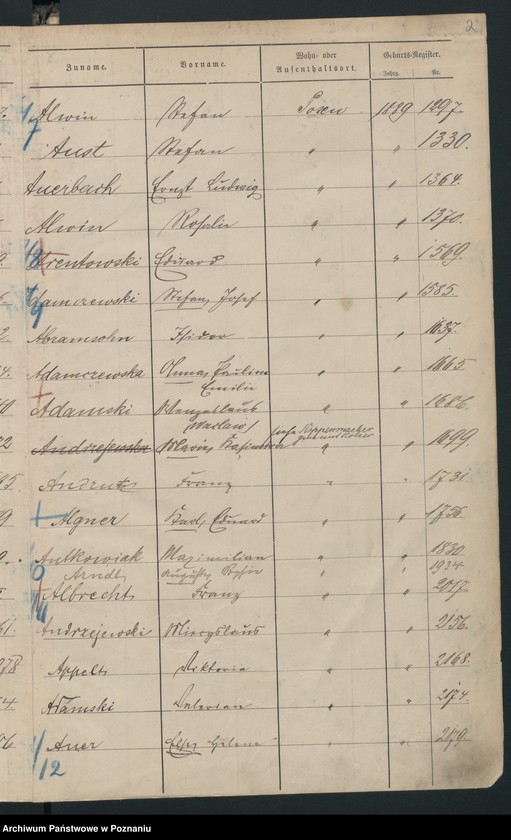 2
Zuname. Vorname. Wohn- oder Aufenthaltsort. Geburts-Register.
Jahrg. Nr.
Alwin Stefan Posen 1889 1297.
Aust Stefan " " 1330.
Auerbach Ernst Ludwig " " 1364.
Alwin Rosalie " " 1370.
Arentowski Eduard " " 1569.
Adamczewski Stefan Josef " " 1585.
Abramsohn Isidor " " 1637.
Adamczewska Pauline " " 1665.
Emilie
Adamski Wenzeslaus " " 1686.
/Waclaw/
Andrzejewska Kasimira " " 1699
Franz " " 1731.
Algner Karl Eduard " "
Antkowiak Maximilian " " 1830
Arndt " " 1934
Albrecht Franz " " 2017
Andrzejewski Miecyslaus " " 2156
Appelt Viktoria " " 2168.
Adamski Valerian " " 2174.
Auer Helene " " 2179.
1/12
Archiwum Państwowe w Poznaniu